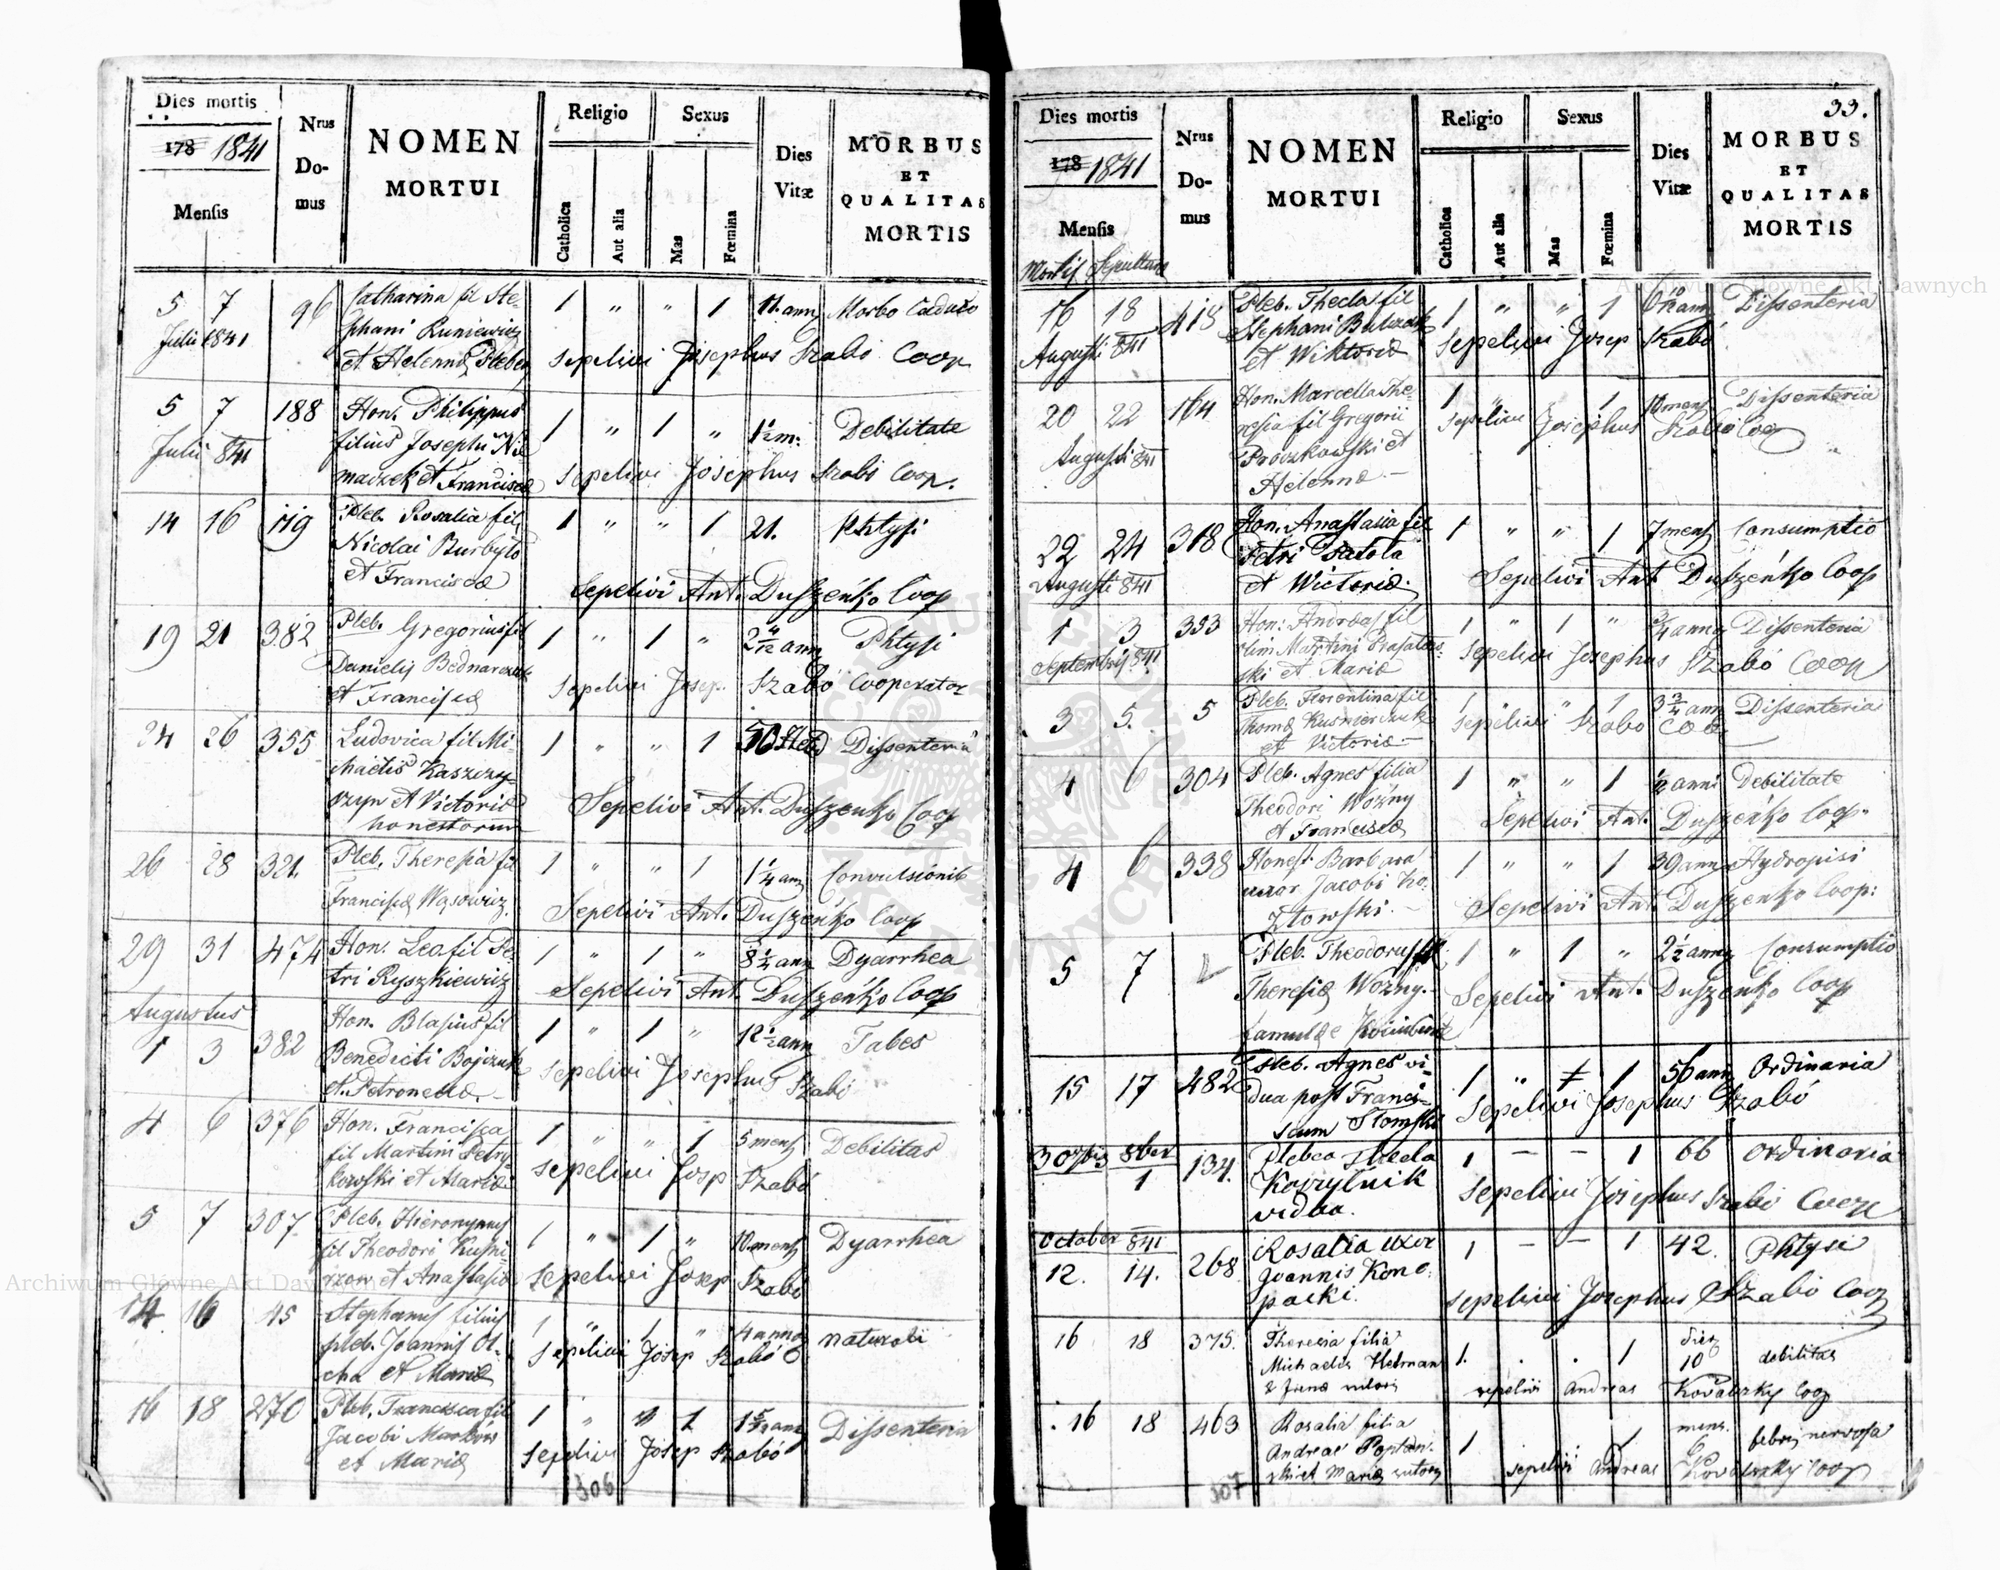 Dies mortis
178 1841
Mensis
Nrus
Do-
mus
NOMEN
MORTUI
Religio
Catholica
Aut alia
Sexus
Mas
Fœmina
Dies
Vitæ
MORBUS
ET
QUALITAS
MORTIS
5 7 96 Catharina fil Ste- 1 " " 1 11 ann Morbo Caduco
Julii 1841 phani Runiewicz
et Helennæ Pleben Sepelivi Josephus Szabó Coop
5 7 188 Hon. Philippus
Julii 841 filius Josephi 1 " 1 " 1½ m: Debilitate
et Francisca Sepelivi Josephus Szabó Coop.
14 16 119 Pleb. Rosalia fil. 1 " " 1 21. Phtysi
Nicolai Burbyło
et Franciscæ Sepelivi Ant. Duszeńko Coop
19 21 382 Pleb. Gregorius fil 1 " 1 " 2 4/12 ann Phtysi
Danielis Bednarczuk
et Franciscæ Sepelivi Josep. Szabó Cooperator
24 26 355 Ludovica fil Mi- 1 " " 1 Dissenteria
et Victoriæ Sepelivi Ant. Duszeńko Coop
honestorum
26 28 321. Pleb. Theresia fil 1 " " 1 1¼ ann Convulsionib
Francisci Wąsowicz. Sepelivi Ant. Duszeńko Coop
29 31 474 Hon. Lea fil Pe- 1 " 1 " 8¼ ann Dyarrhea
tri Ryszkiewicz Sepelivi Ant. Duszeńko Coop
Augustus
1 3 382 Hon. Blasius fil 1 " 1 " 12½ ann Tabes
Benedicti Bojczuk
et Petronellæ. Sepelivi Josephus Szabó
4 6 376 Hon. Francisca 1 " " 1 5 mens Debilitas
fil Martini Petry-
kowski et Mariæ Sepelivi Josp Szabó
5 7 307 Pleb. Hieronymus 1 " 1 " 10 mens Dyarrhea
fil Theodori
et Anastasiæ Sepelivi Josep Szabó
14 16 45 Stephanus filius 1 " 1 " 4 anno naturali
pleb. Joannis
et Mariæ Sepelivi Josep Szabó C
16 18 270 Pleb. Francisca fil 1 " 1 Dissenteria
Jacobi
et Mariæ Sepelivi Josep Szabó
306
33.
Dies mortis
178 1841
Mensis
Mortis Sepulturæ
Nrus
Do-
mus
NOMEN
MORTUI
Religio
Catholica
Aut alia
Sexus
Mas
Fœmina
Dies
Vitæ
MORBUS
ET
QUALITAS
MORTIS
16 18 418 Pleb. Thecla fil 1 " " 1 Dissenteria
Augusti 841 Stephani
et Wiktoriæ Sepelivi Josep Szabó
20 22 164 Hon. Marcella The- 1 " 1 10 mens Dissenteria
resia fil Gregorii Sepelivi Josephus Szabó Coop
Augusti 841 Proczkowski et
Helennæ
22 24 318 Hon. Anastasia fil 1 " " 1 7 mens Consumptio
Augusti 841 Petri
et Wictoriæ. Sepelivi Ant. Duszeńko Coop
1 3 393 Hon: Andreas fil 1 " 1 " ¾ anno Dissenteria
Septembris 841 Martini
ski et Mariæ Sepelivi Josephus Szabó Coop
3 5. 5 Pleb. Florentina fil 1 " " 1 3¾ ann Dissenteria
Thomæ Kusnierczuk
et Victoriæ Sepelivi Szabó Coo.
4 6 304 Pleb. Agnes filia 1 " " 1 ½ anni Debilitate
Theodori Wozny
et Franciscæ Sepelivi Ant. Duszeńko Coop.
4 6 338 Honest Barbara 1 " " 1 39 ann Hydropisi
uxor Jacobi Ko-
złowski. Sepelivi Ant. Duszeńko Coop:
5 7 Pleb. Theodorus fil 1 " 1 " 2½ anno Consumptio
Theresiæ Wozny. Sepelivi Ant. Duszeńko Coop
famulæ
15 17 482 Pleb. Agnes vi- 1 " 1 56 ann Ordinaria
dua post Franci-
scum Słomski Sepelivi Josephus Szabó
30 7bris 8ber 134. Plebea Thecla 1 – – 1 66 Ordinaria
1 Korzylnik
vidua. Sepelivi Josephus Szabó Coop
October 841 Rosalia uxor 1 – – 1 42. Phtysi
12. 14. 268 Joannis Kono-
packi. Sepelivi Josephus Szabó Coop
16 18 375. Theresia filia 1. . . 1 dier 10 debilitas
Michaelis Hetman
sepelivi Andreas Kovalszky Coop
16 18 463 Rosalia filia 1 1 mens. febris nervosa
Andreae
et Mariæ sepelivi Andreas Kovalszky Coop
307
Archiwum Główne Akt Dawnych
Archiwum Główne Akt Dawnych
ARCHIWUM GŁÓWNE AKT DAWNYCH